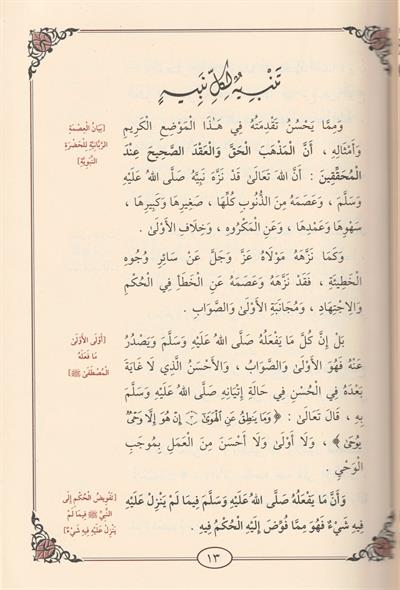 تَنْبِيهٌ لِكُلِّ نَبِيهٍ
وَمِمَّا يَحْسُنُ تَقْدِمَتُهُ فِي هَـٰذَا الْمَوْضِعِ الْكَرِيمِ
وَأَمْثَالِهِ ، أَنَّ الْمَذْهَبَ الْحَقَّ وَالْعَقْدَ الصَّحِيحَ عِنْدَ
الْمُحَقِّقِينَ : أَنَّ اللهَ تَعَالَىٰ قَدْ نَزَّهَ نَبِيَّهُ صَلَّى اللهُ عَلَيْهِ
وَسَلَّمَ ، وَعَصَمَهُ مِنَ الذُّنُوبِ كُلِّهَا ، صَغِيرِهَا وَكَبِيرِهَا ،
سَهْوِهَا وَعَمْدِهَا ، وَعَنِ الْمَكْرُوهِ ، وَخِلَافِ الْأَوْلَىٰ .
[بَيَانُ الْعِصْمَةِ
الرَّبَّانِيَّةِ لِلْحَضْرَةِ
النَّبَوِيَّةِ]
وَكَمَا نَزَّهَهُ مَوْلَاهُ عَزَّ وَجَلَّ عَنْ سَائِرِ وُجُوهِ
الْخَطِيئَةِ ، فَقَدْ نَزَّهَهُ وَعَصَمَهُ عَنِ الْخَطَأِ فِي الْحُكْمِ
وَالِاجْتِهَادِ ، وَمُجَانَبَةِ الْأَوْلَىٰ وَالصَّوَابِ .
بَلْ إِنَّ كُلَّ مَا يَفْعَلُهُ صَلَّى اللهُ عَلَيْهِ وَسَلَّمَ وَيَصْدُرُ
عَنْهُ فَهُوَ الْأَوْلَىٰ وَالصَّوَابُ ، وَالْأَحْسَنُ الَّذِي لَا غَايَةَ
بَعْدَهُ فِي الْحُسْنِ فِي حَالَةِ إِتْيَانِهِ صَلَّى اللهُ عَلَيْهِ وَسَلَّمَ
بِهِ ، قَالَ تَعَالَىٰ : ﴿ وَمَا يَنطِقُ عَنِ الْهَوَىٰ ۝ إِنْ هُوَ إِلَّا وَحْيٌ
يُوحَىٰ ﴾ ، وَلَا أَوْلَىٰ وَلَا أَحْسَنَ مِنَ الْعَمَلِ بِمُوجَبِ
الْوَحْيِ .
[أَوْلَى الْأَوْلَىٰ
مَا فَعَلَهُ
الْمُصْطَفَىٰ ﷺ]
وَأَنَّ مَا يَفْعَلُهُ صَلَّى اللهُ عَلَيْهِ وَسَلَّمَ فِيمَا لَمْ يَنْزِلْ عَلَيْهِ
فِيهِ شَيْءٌ فَهُوَ مِمَّا فُوِّضَ إِلَيْهِ الْحُكْمُ فِيهِ .
[تَفْوِيضُ الْحُكْمِ إِلَى
النَّبِيِّ ﷺ فِيمَا لَمْ
يَنْزِلْ عَلَيْهِ فِيهِ شَيْءٌ]
١٣